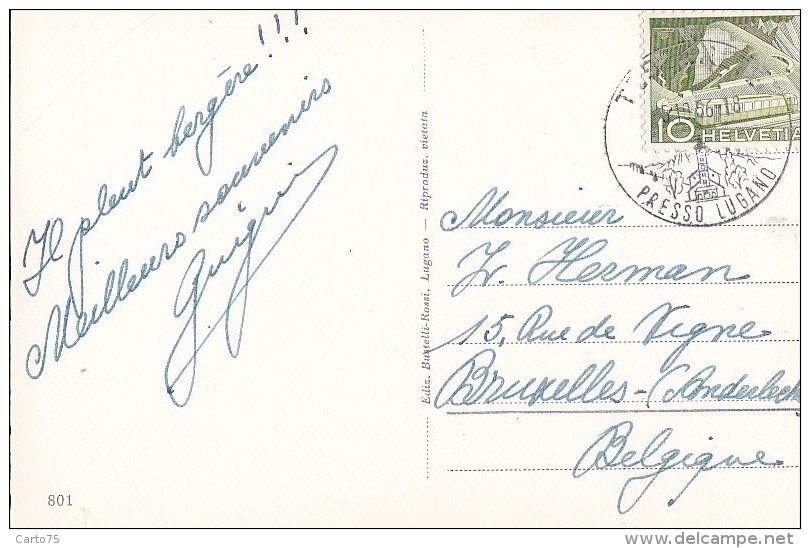 Il pleut bergère!!!
Meilleurs souvenirs
801
Ediz. Buetelli-Rossi, Lugano — Riproduz. vietata
10 HELVETIA
PRESSO LUGANO
Monsieur
Herman
15, Rue de Vigne
Bruxelles-(Anderlech
Belgique
Carto75
delcampe.net